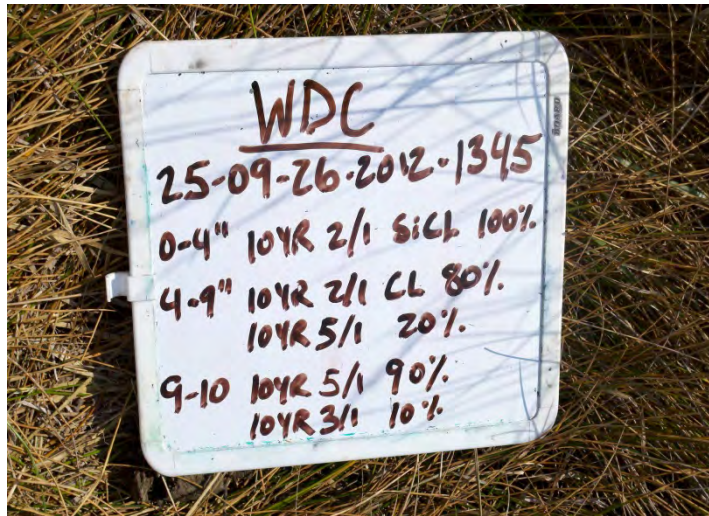 WDC
25-09-26-2012-1345
0-4" 10YR 2/1 SiCL 100%
4-9" 10YR 2/1 CL 80%
10YR 5/1 20%
9-10 10YR 5/1 90%
10YR 3/1 10%